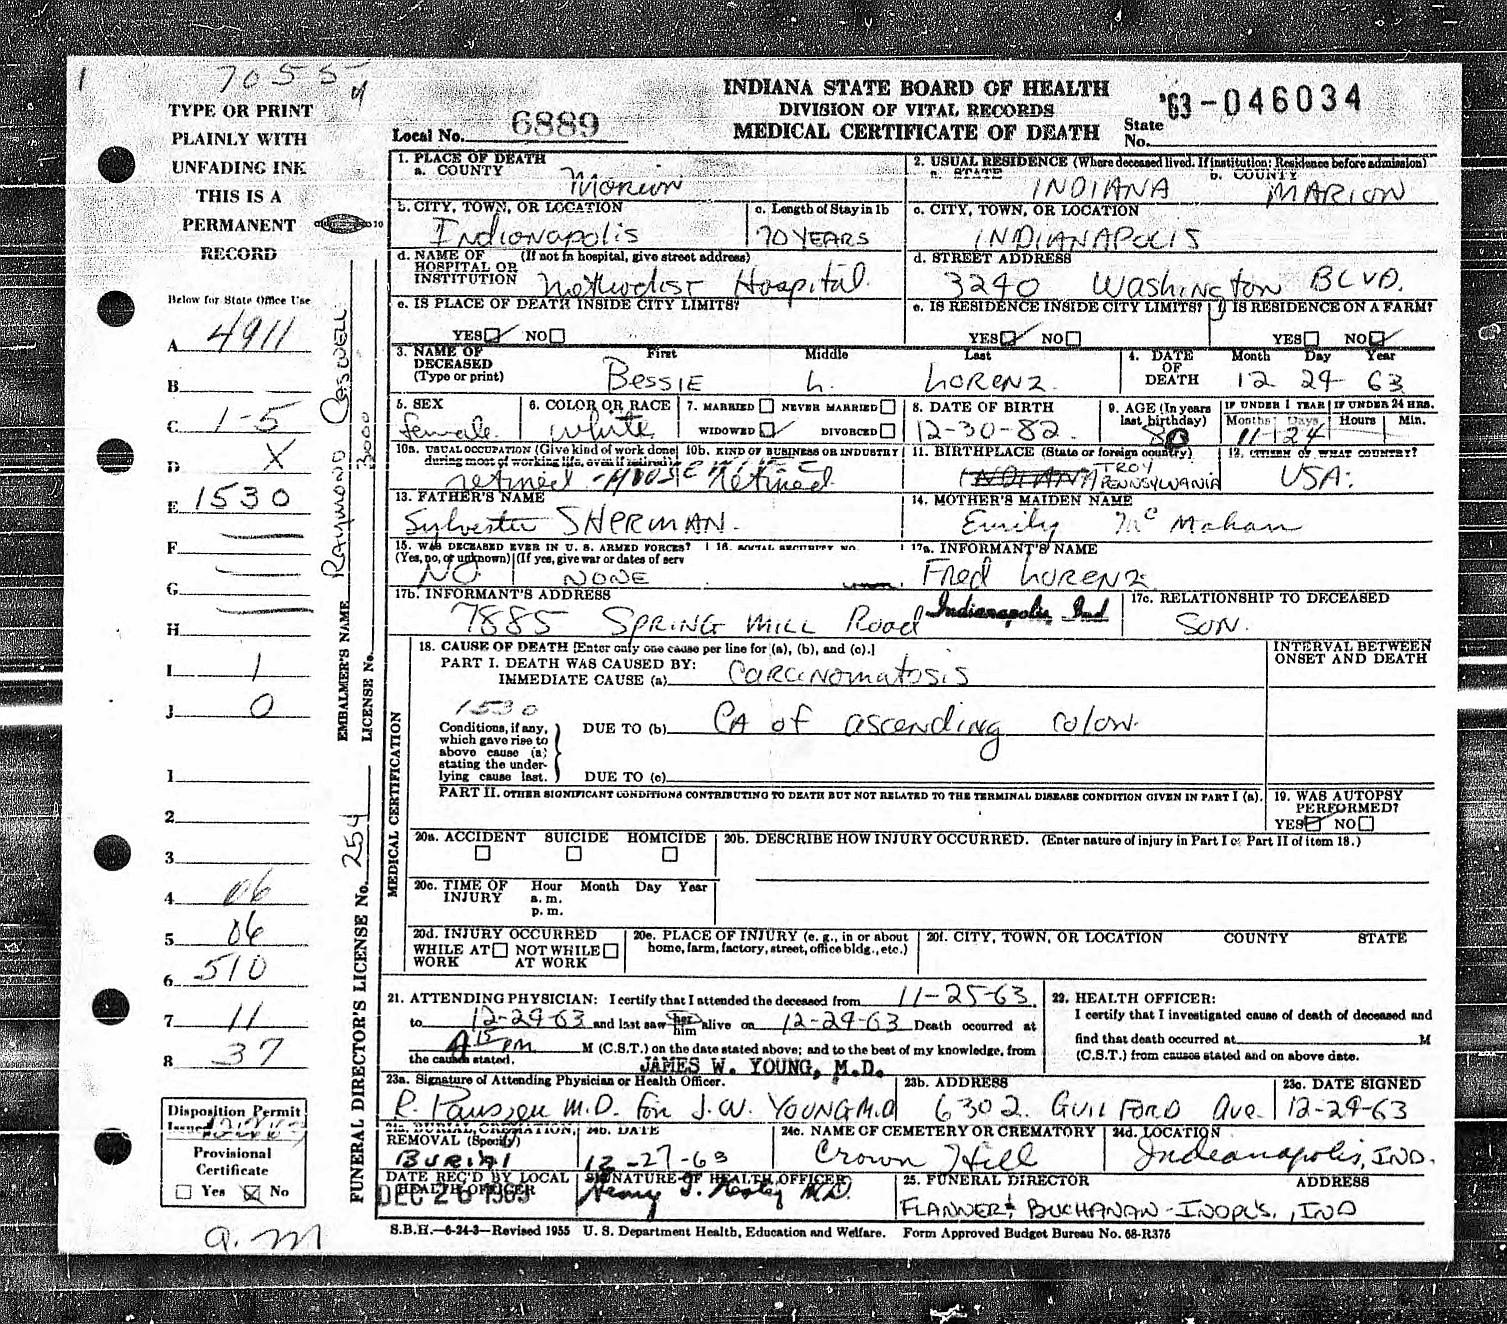 1
7055
TYPE OR PRINT
PLAINLY WITH
UNFADING INK
THIS IS A
PERMANENT
RECORD
Below for State Office Use
A 4911
B
C 1-5
D X
E 1530
F
G
H
I 1
J 0
1
2
3
4 06
5 06
6 510
7 11
8 37
Disposition Permit
Issued
Provisional
Certificate
Yes No
a.m
EMBALMER'S NAME RAYMOND CASWELL
LICENSE No. 3000
FUNERAL DIRECTOR'S LICENSE No. 254
INDIANA STATE BOARD OF HEALTH
DIVISION OF VITAL RECORDS
MEDICAL CERTIFICATE OF DEATH
Local No. 6889
State No. '63-046034
1. PLACE OF DEATH
a. COUNTY Marion
2. USUAL RESIDENCE (Where deceased lived. If institution: Residence before admission)
a. STATE INDIANA b. COUNTY MARION
b. CITY, TOWN, OR LOCATION Indianapolis
c. Length of Stay in 1b 70 YEARS
c. CITY, TOWN, OR LOCATION INDIANAPOLIS
d. NAME OF HOSPITAL OR INSTITUTION (If not in hospital, give street address) Methodist Hospital
d. STREET ADDRESS 3240 Washington BLVD.
e. IS PLACE OF DEATH INSIDE CITY LIMITS?
YES NO
e. IS RESIDENCE INSIDE CITY LIMITS?
YES NO
f. IS RESIDENCE ON A FARM?
YES NO
3. NAME OF DECEASED (Type or print)
First Middle Last
BESSIE L. LORENZ
4. DATE OF DEATH Month Day Year
12 24 63
5. SEX female
6. COLOR OR RACE white
7. MARRIED NEVER MARRIED
WIDOWED DIVORCED
8. DATE OF BIRTH 12-30-82
9. AGE (In years last birthday) 80
IF UNDER 1 YEAR IF UNDER 24 HRS.
Months Days Hours Min.
11-24
10a. USUAL OCCUPATION (Give kind of work done during most of working life, even if retired) retired - Housewife
10b. KIND OF BUSINESS OR INDUSTRY Retired
11. BIRTHPLACE (State or foreign country) INDIANA TROY PENNSYLVANIA
12. CITIZEN OF WHAT COUNTRY? USA.
13. FATHER'S NAME Sylvester SHERMAN.
14. MOTHER'S MAIDEN NAME Emily McMahan
15. WAS DECEASED EVER IN U. S. ARMED FORCES?
(Yes, no, or unknown) (If yes, give war or dates of serv
NO. NONE
16. SOCIAL SECURITY NO.
17a. INFORMANT'S NAME Fred LORENZ
17b. INFORMANT'S ADDRESS 7885 SPRING MILL Road Indianapolis, Ind
17c. RELATIONSHIP TO DECEASED SON.
MEDICAL CERTIFICATION
18. CAUSE OF DEATH [Enter only one cause per line for (a), (b), and (c).]
PART I. DEATH WAS CAUSED BY:
IMMEDIATE CAUSE (a) Carcinomatosis
INTERVAL BETWEEN ONSET AND DEATH
1530
Conditions, if any, which gave rise to above cause (a) stating the underlying cause last.
DUE TO (b) CA of ascending colon
DUE TO (c)
PART II. OTHER SIGNIFICANT CONDITIONS CONTRIBUTING TO DEATH BUT NOT RELATED TO THE TERMINAL DISEASE CONDITION GIVEN IN PART I (a).
19. WAS AUTOPSY PERFORMED?
YES NO
20a. ACCIDENT SUICIDE HOMICIDE
20b. DESCRIBE HOW INJURY OCCURRED. (Enter nature of injury in Part I or Part II of item 18.)
20c. TIME OF INJURY Hour Month Day Year
a. m.
p. m.
20d. INJURY OCCURRED
WHILE AT WORK NOT WHILE AT WORK
20e. PLACE OF INJURY (e. g., in or about home, farm, factory, street, office bldg., etc.)
20f. CITY, TOWN, OR LOCATION COUNTY STATE
21. ATTENDING PHYSICIAN: I certify that I attended the deceased from 11-25-63
to 12-24-63 and last saw her him alive on 12-24-63 Death occurred at
4 15 PM M (C.S.T.) on the date stated above; and to the best of my knowledge, from
the causes stated.
JAMES W. YOUNG, M.D.
22. HEALTH OFFICER:
I certify that I investigated cause of death of deceased and
find that death occurred at M
(C.S.T.) from causes stated and on above date.
23a. Signature of Attending Physician or Health Officer.
M.D. for J.W. YOUNG M.D
23b. ADDRESS 6302 GUILFORD Ave.
23c. DATE SIGNED 12-24-63
24a. BURIAL, CREMATION, REMOVAL (Specify) BURIAL
24b. DATE 12-27-63
24c. NAME OF CEMETERY OR CREMATORY Crown Hill
24d. LOCATION Indianapolis, IND.
DATE REC'D BY LOCAL HEALTH OFFICER DEC 26 1963
SIGNATURE OF HEALTH OFFICER
M.D.
25. FUNERAL DIRECTOR ADDRESS
FLANNER & BUCHANAN - INDPLS., IND
S.B.H.—6-24-3—Revised 1955 U. S. Department Health, Education and Welfare. Form Approved Budget Bureau No. 68-R375